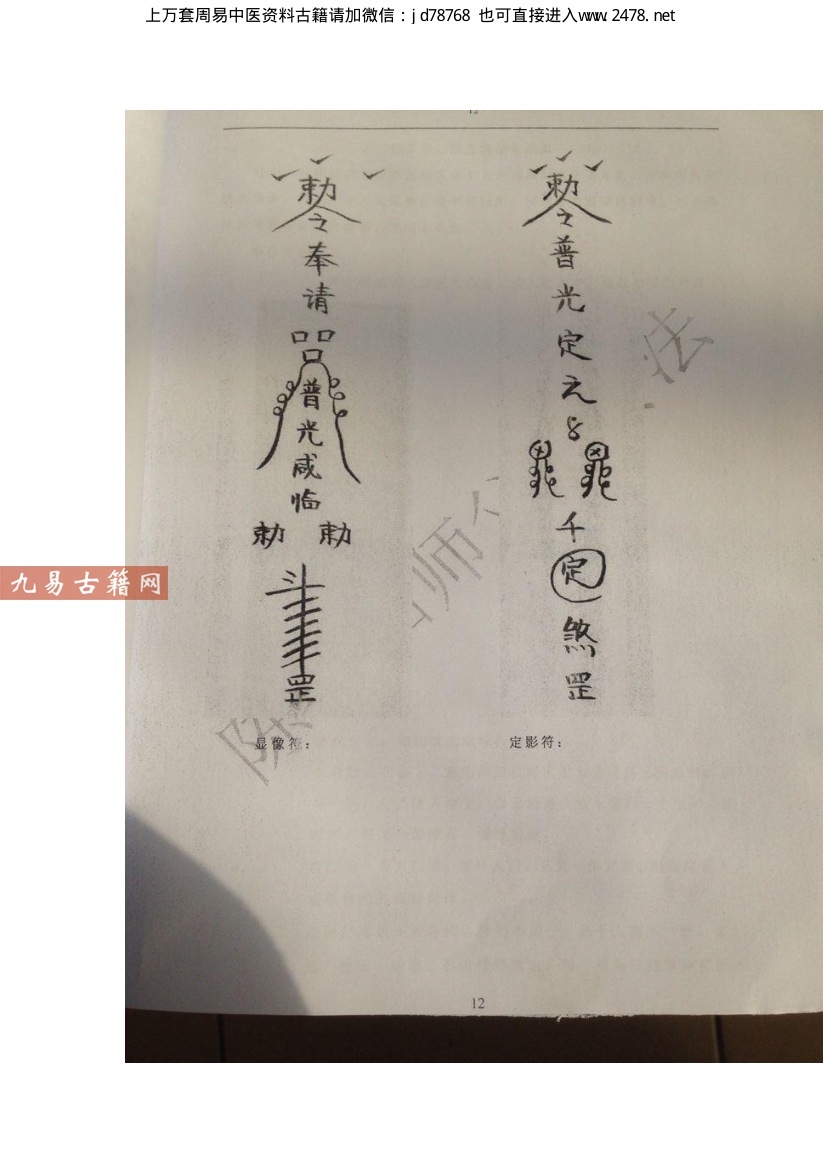 上万套周易中医资料古籍请加微信：jd78768 也可直接进入www.2478.net
12
敕令奉请
普光咸临
敕 敕
罡
敕令普光定元
千定煞罡
九易古籍网
师
法
显像符：
定影符：
12